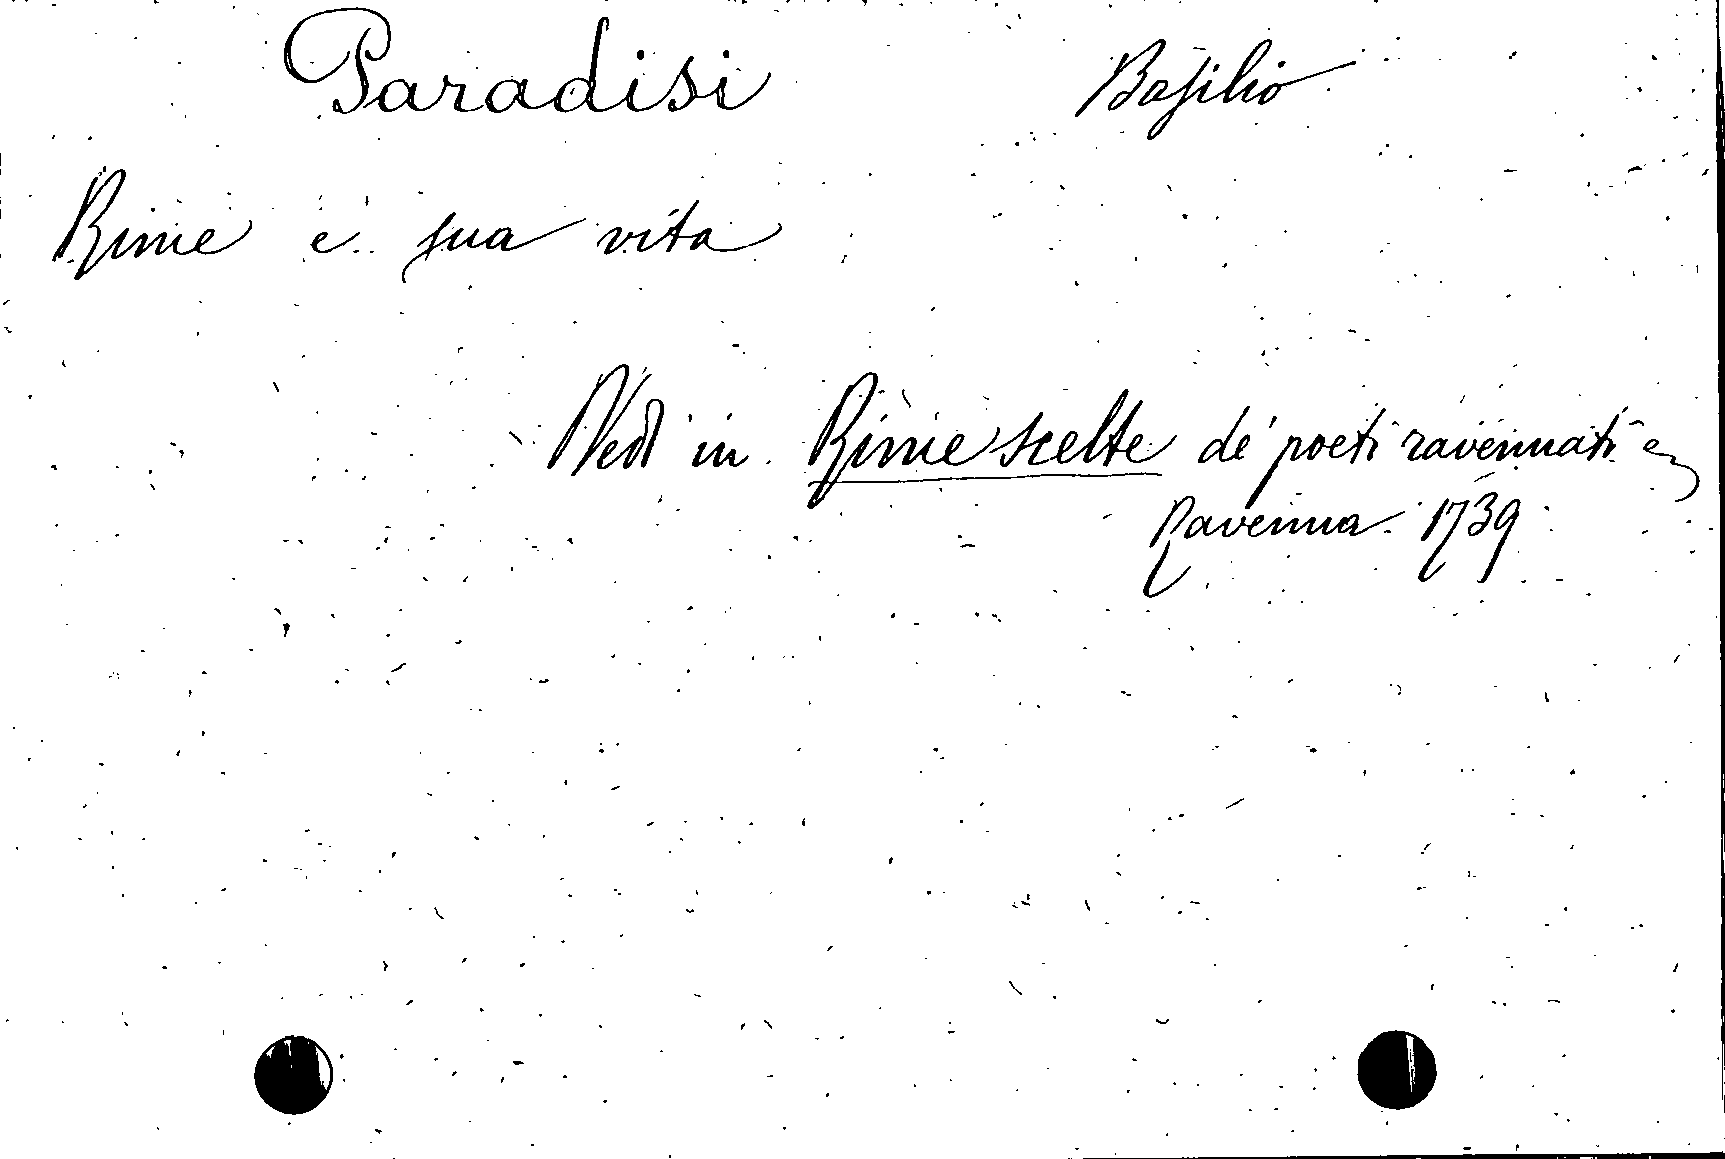 Paradisi Basilio
Rime e sua vita
Vedi in Rime scelte de' poeti ravennati
Ravenna. 1739